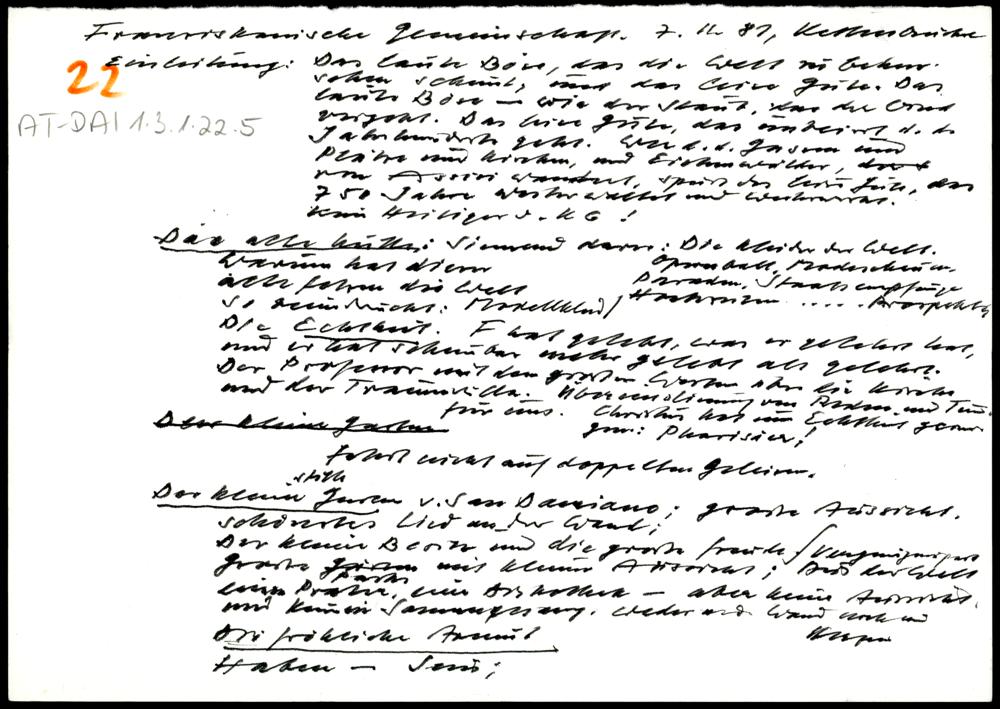 Franziskanische Gemeinschaft. 7. 11. 81, Kettenbrücke
22
Einleitung: Das laute Böse, das die Welt zu beherr-
schen scheint, und das leise Gute. Das
laute Böse — wie der Staub, den der Wind
verweht. Das leise Gute, das unbeirrt d. d.
Jahrhunderte geht. Wer d. d. Gassen und
Plätze und Kirchen, und Eichenwälder,
von Assisi wandert, spürt das leise Gute, das
750 Jahre weiterwaltet und weiterwirkt.
Kein Heiliger d. KG!
AT-DAI 1.3.1.22.5
Die alte Kutte: Sinnend davor: Die Kleider der Welt.
Warum hat dieser Opernball, Modeschauen,
alte Fetzen die Welt Paraden, Staatsempfänge
so beeindruckt: Modellkleid / Hochzeiten ..... Prospekte
Die Echtheit. F hat gelebt, was er gelehrt hat,
und er hat scheinbar mehr gelebt als gelehrt.
Der Professor mit den großen Worten über die Kirche
und der Traumvilla. Übereinstimmung von Reden und Tun
für uns. Christus hat um Echtheit gerun-
gen: Pharisäer!
Der kleine Garten
Fahrt nicht auf doppelten Geleisen.
stille
Der kleine Garten v. San Damiano; große Aussicht.
schönstes Lied an der Wand;
Der kleine Besitz und die große Freude / Vergnügungspark
Große Gärten mit kleiner Aussicht; Aus der Welt
Parks
einen Prater, eine Diskothek — aber keine Aussicht,
und keinen Sonnengesang. Weder an d. Wand noch im
Herzen
Die fröhliche Armut
Haben — Sein;